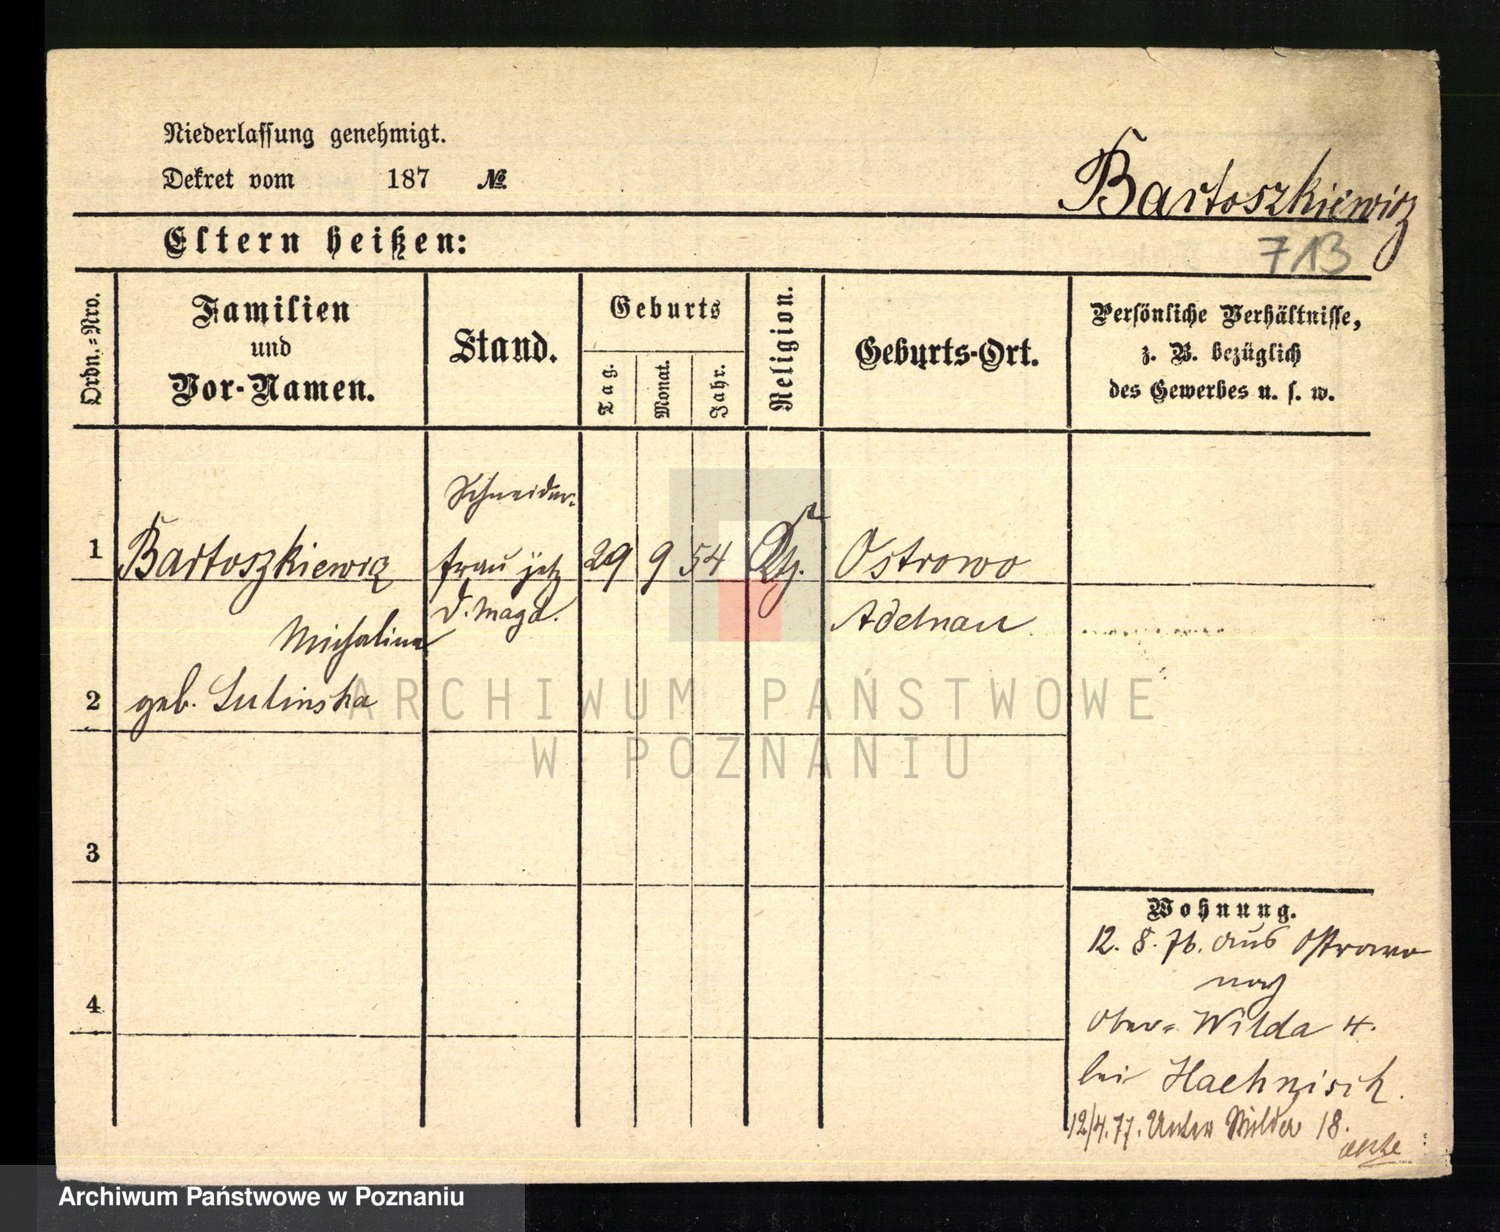 Niederlassung genehmigt.
Dekret vom 187 №
Bartoszkiewicz
713
Eltern heißen:
Ordn.-Nro.
Familien
und
Vor-Namen.
Stand.
Geburts
Tag.
Monat.
Jahr.
Religion.
Geburts-Ort.
Persönliche Verhältnisse,
z. B. bezüglich
des Gewerbes u. s. w.
Schneider-
1 Bartoszkiewicz frau jetz 29 9 54 Ostrowo
d. Magd. Adelnau
Michalina
2 geb. Sulinska
ARCHIWUM PAŃSTWOWE
W POZNANIU
3
4
Wohnung.
12. 8. 76. aus Ostrowo
nach
Ober- Wilda 4.
bei Haehnisch.
12/4. 77. Unter Wilda 18.
Archiwum Państwowe w Poznaniu